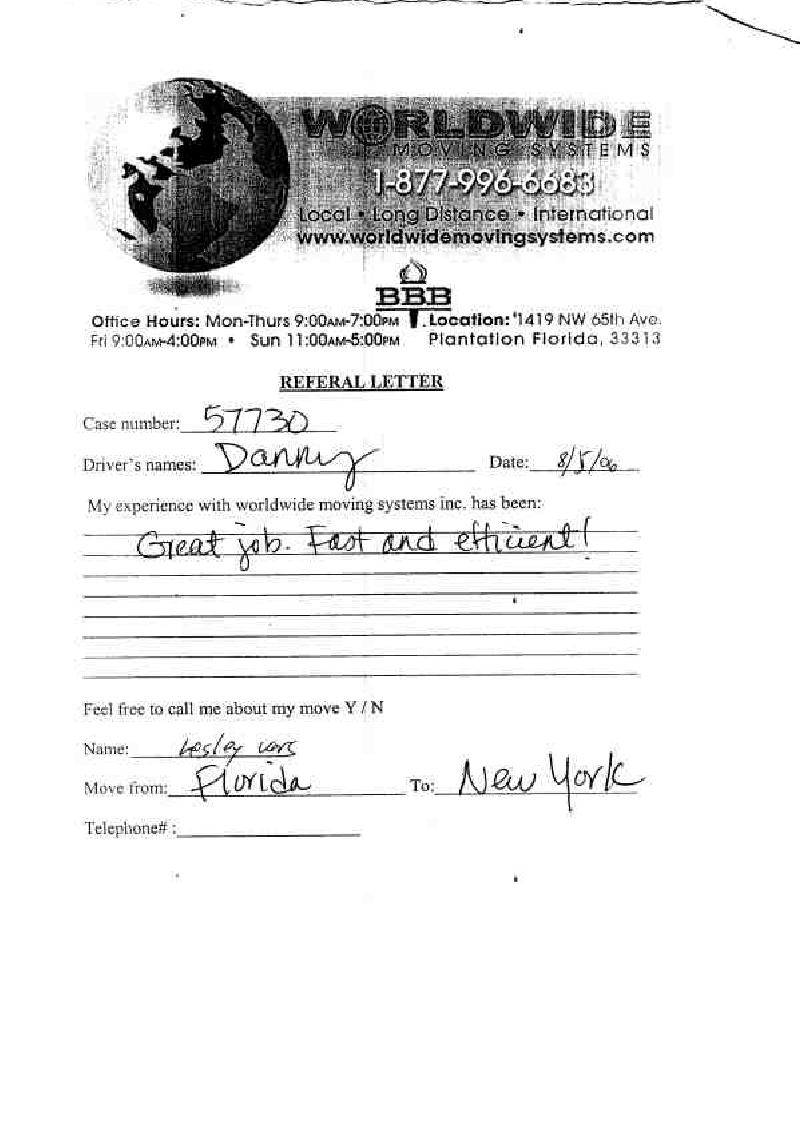 WORLDWIDE
MOVING SYSTEMS
1-877-996-6683
Local • Long Distance • International
www.worldwidemovingsystems.com
BBB
Office Hours: Mon-Thurs 9:00AM-7:00PM
Fri 9:00AM-4:00PM • Sun 11:00AM-5:00PM
Location: 1419 NW 65th Ave.
Plantation Florida, 33313
REFERAL LETTER
Case number: 57730
Driver's names: Danny Date: 8/5/06
My experience with worldwide moving systems inc. has been:
Great job. Fast and efficient!
Feel free to call me about my move Y / N
Name: Lesley
Move from: Florida To: New York
Telephone# :